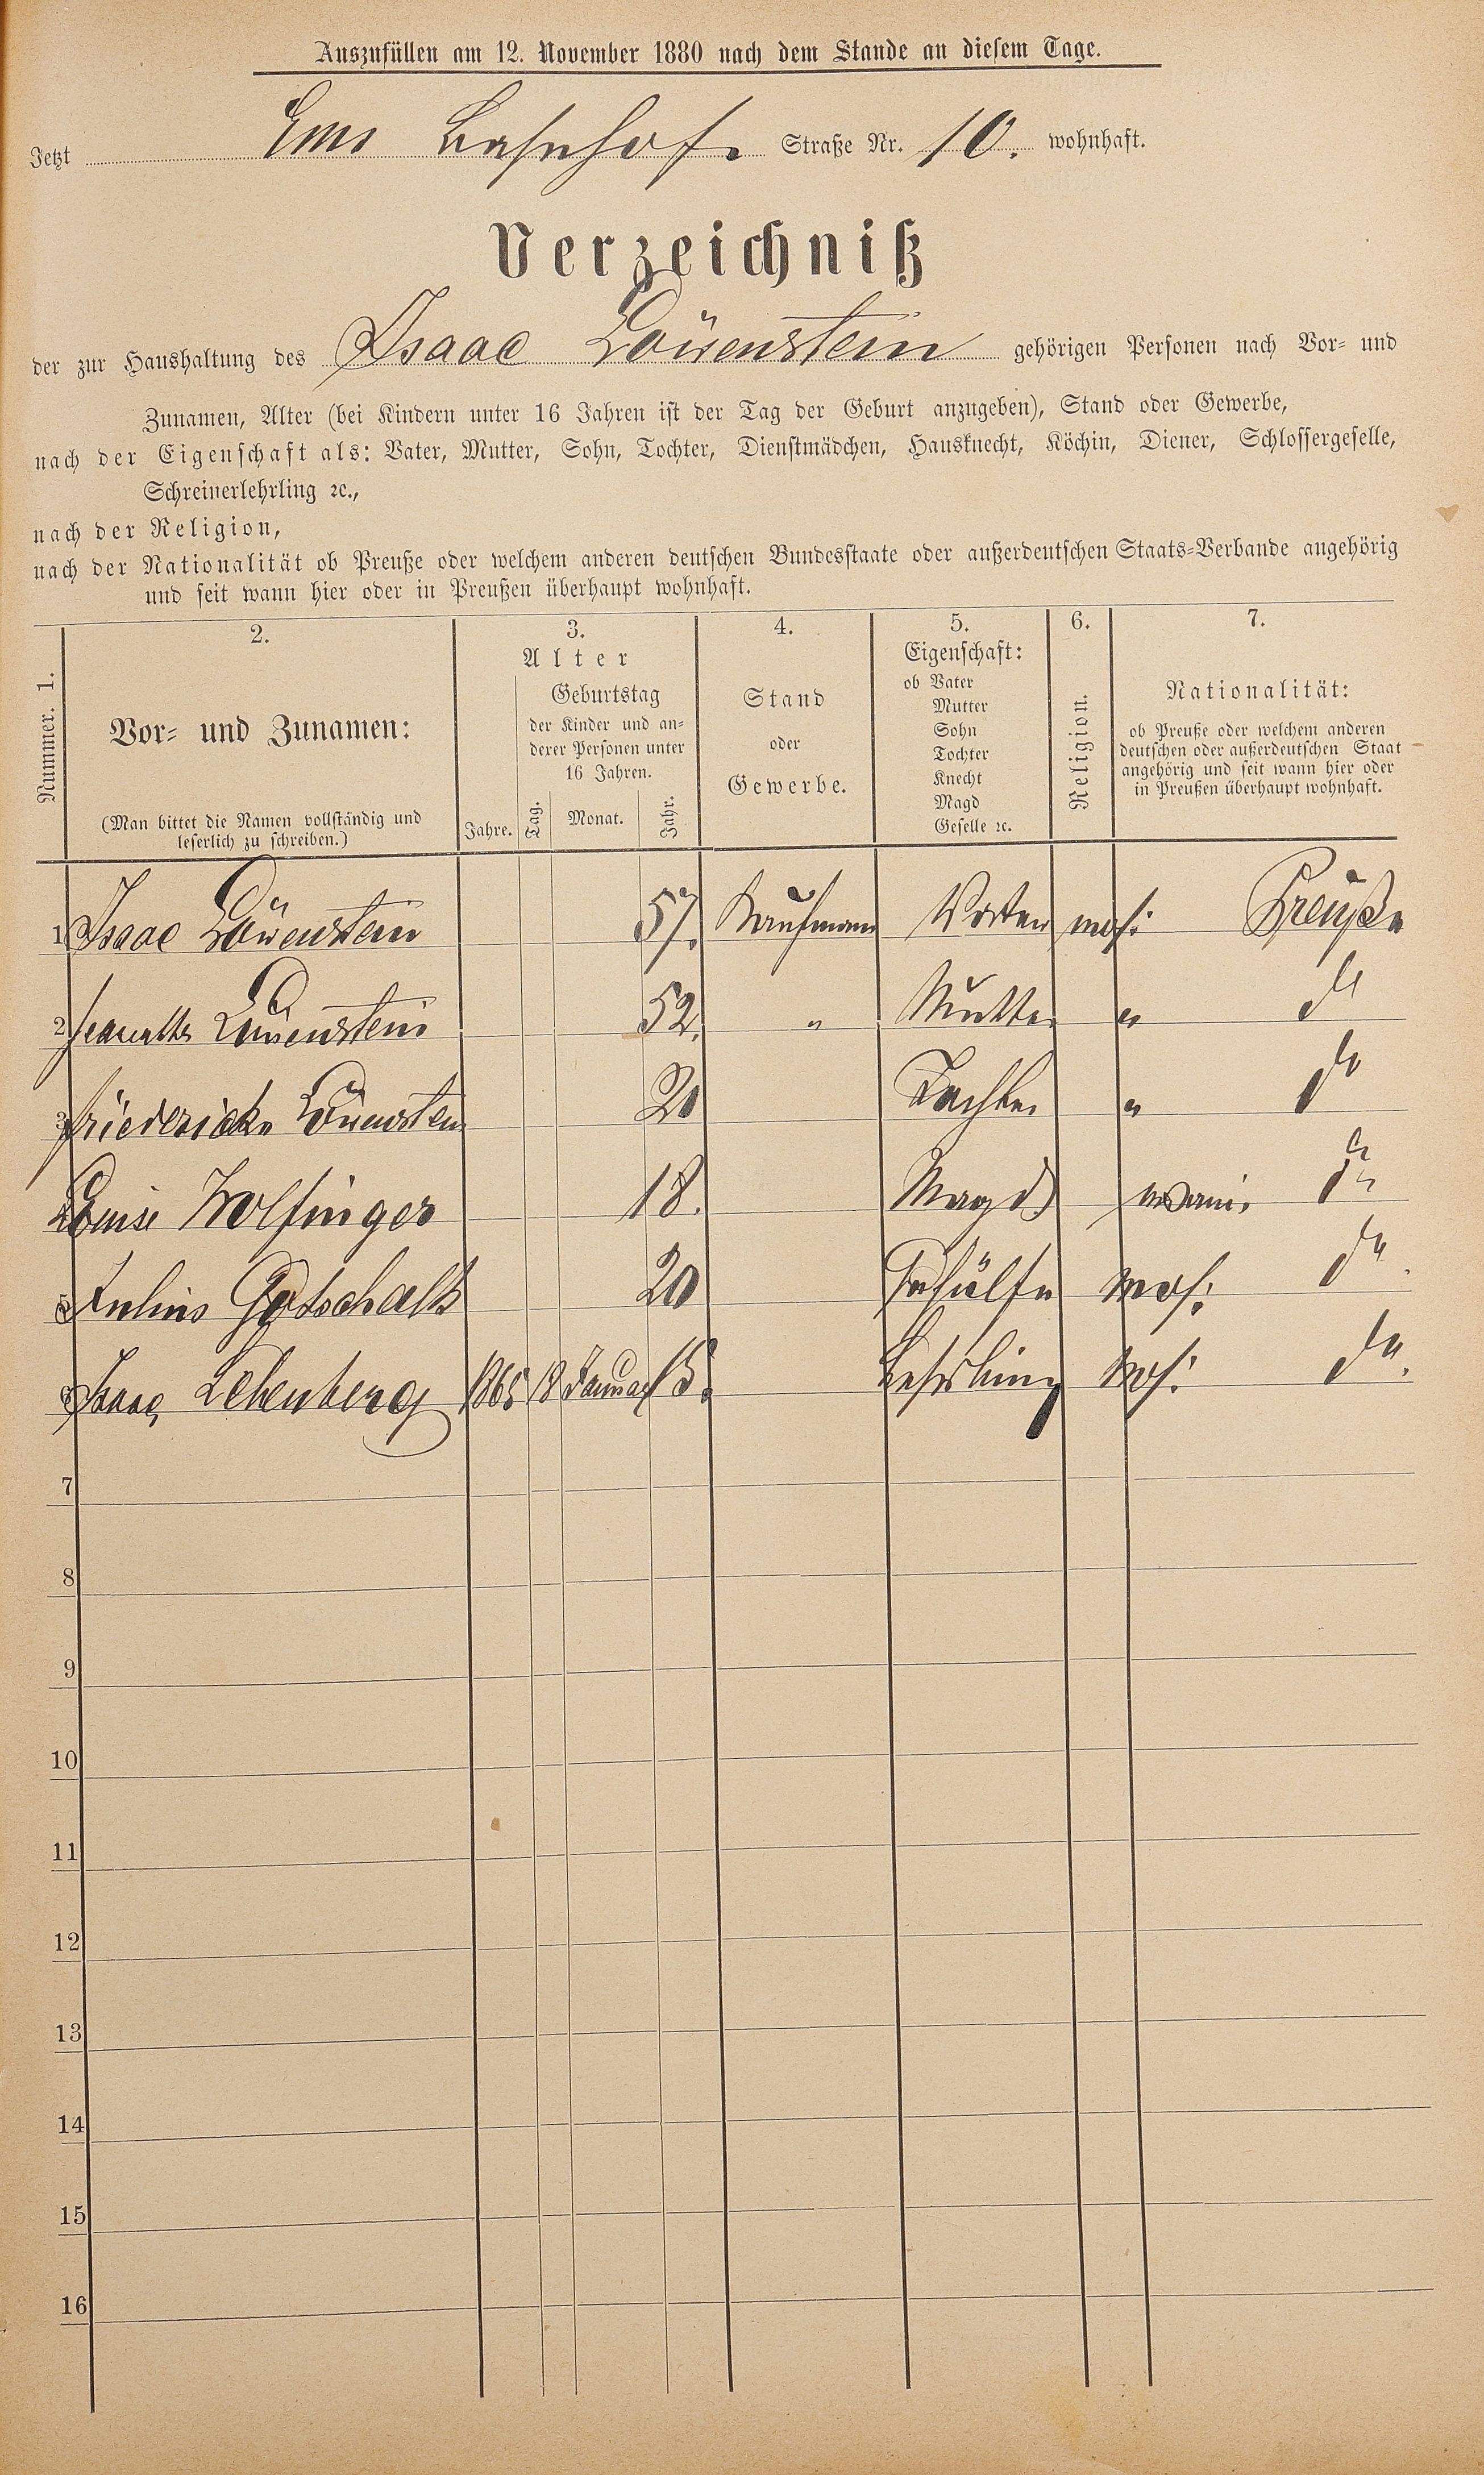 Auszufüllen am 12. November 1880 nach dem Stande an diesem Tage.
Jetzt Ems Bahnhof. Straße Nr. 10. wohnhaft.
Verzeichniß
der zur Haushaltung des Isaac Löwenstein gehörigen Personen nach Vor- und
Zunamen, Alter (bei Kindern unter 16 Jahren ist der Tag der Geburt anzugeben), Stand oder Gewerbe,
nach der Eigenschaft als: Vater, Mutter, Sohn, Tochter, Dienstmädchen, Hausknecht, Köchin, Diener, Schlossergeselle,
Schreinerlehrling ꝛc.,
nach der Religion,
nach der Nationalität ob Preuße oder welchem anderen deutschen Bundesstaate oder außerdeutschen Staats-Verbande angehörig
und seit wann hier oder in Preußen überhaupt wohnhaft.
Nummer. 1.
2.
Vor- und Zunamen:
(Man bittet die Namen vollständig und
leserlich zu schreiben.)
3.
Alter
Jahre.
Geburtstag
der Kinder und an-
derer Personen unter
16 Jahren.
Tag.
Monat.
Jahr.
4.
Stand
oder
Gewerbe.
5.
Eigenschaft:
ob Vater
Mutter
Sohn
Tochter
Knecht
Magd
Geselle ꝛc.
6.
Religion.
7.
Nationalität:
ob Preuße oder welchem anderen
deutschen oder außerdeutschen Staat
angehörig und seit wann hier oder
in Preußen überhaupt wohnhaft.
1 Isaac Löwenstein 57. Kaufmann Vater mos: Preuße
2 Jeanette Löwenstein 52. " Mutter " do
3 Friedericke Löwenstein 20 Tochter " do
Louise Wolfinger 18. Magd do
5 Julius Gotschalk 20 Gehülfe mos: do
6 Isaac Lebenberg 1865 18 Januar 15. Lehrling mos: do.
7
8
9
10
11
12
13
14
15
16